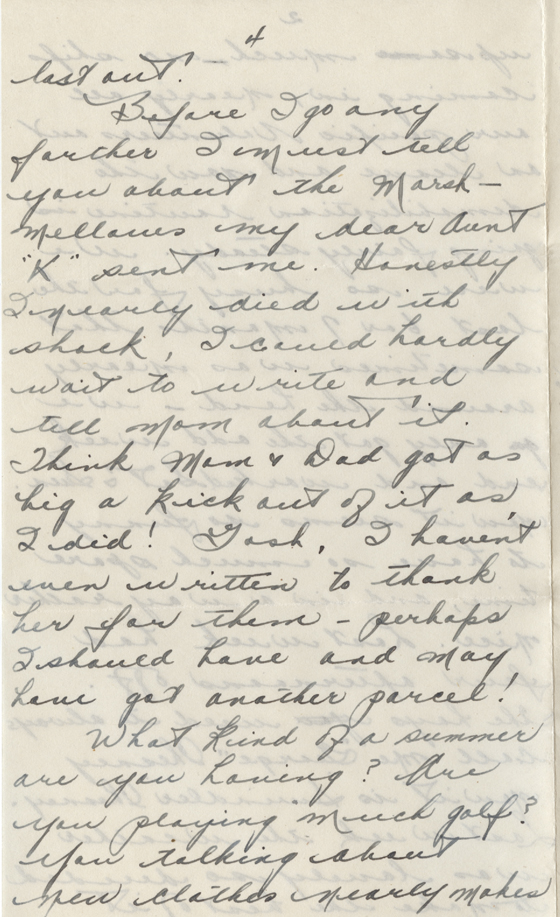 4
last out!
Before I go any
farther I must tell
you about the Marsh-
mellows my dear Aunt
"K" sent me. Honestly
I nearly died with
shock, I could hardly
wait to write and
tell Mom about it.
Think Mom & Dad got as
big a kick out of it as
I did! Gosh, I haven't
even written to thank
her for them - perhaps
I should have and may
have got another parcel!
What kind of a summer
are you having? Are
you playing much golf?
You talking about
new clothes nearly makes